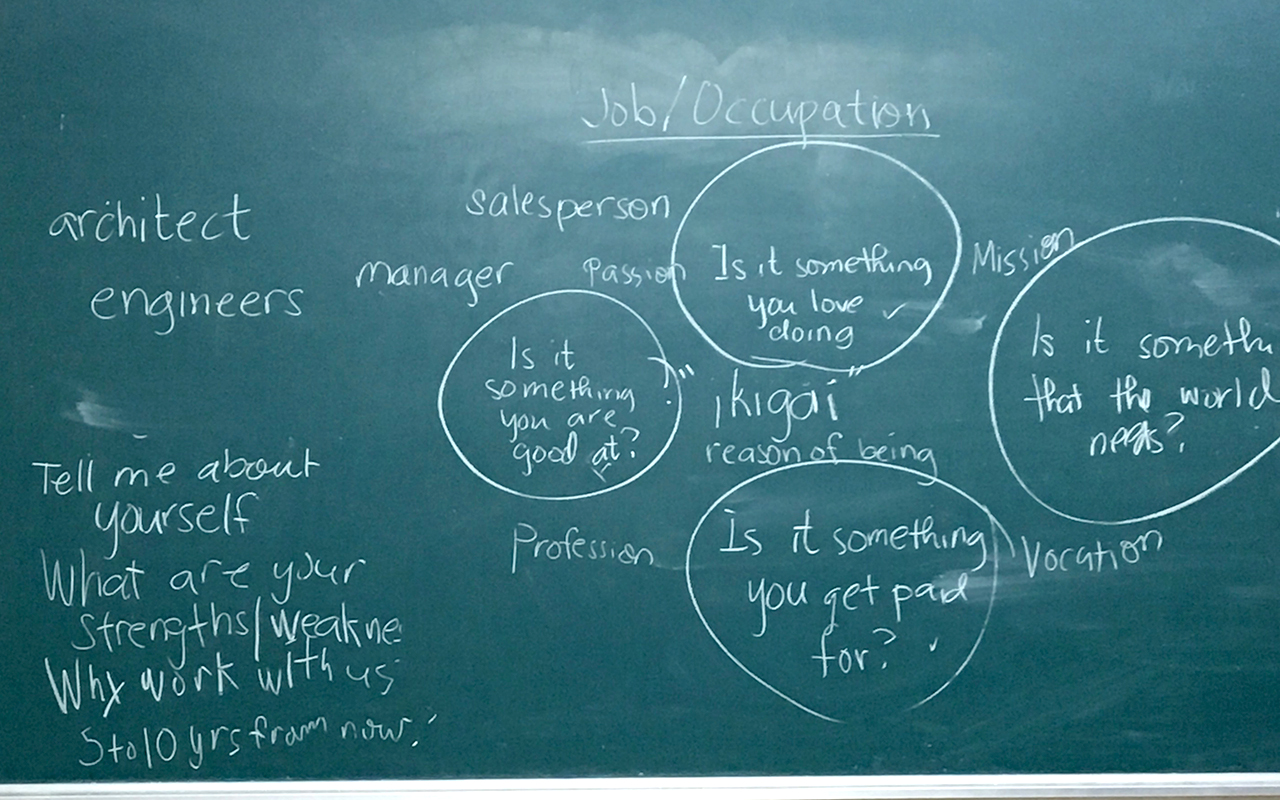 Job/Occupation
architect
engineers
salesperson
manager
Passion
Is it something
you love
doing
Mission
Is it
something
you are
good at?
"ikigai"
reason of being
Is it somethi
that the world
needs?
Profession
Is it something
you get paid
for?
Vocation
Tell me about
yourself
What are your
strengths/weakne
Why work with us
5to10 yrs from now?